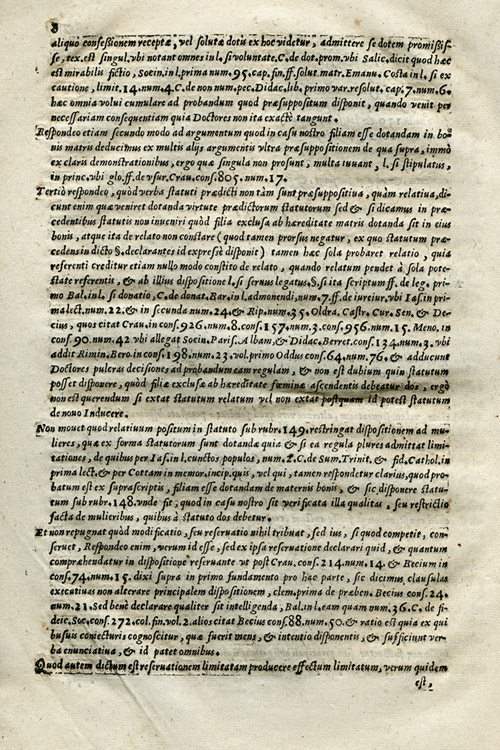 8
aliquo confeßionem receptæ, vel solutæ dotis ex hoc videtur, admittere se dotem promißis-
se, tex. est singul. vbi notant omnes in l. si voluntate. C. de dot. prom. vbi Salic. dicit quod hæc
est mirabilis fictio, Socin. in l. prima num. 95. cap. fin. ff. solut. matr. Emanu. Costa in l. si ex
cautione, limit. 14. num. 4. C. de non num. pec. Didac. lib. primo var. resolut. cap. 7. num. 6.
hæc omnia volui cumulare ad probandum quod præsuppositum disponit, quando venit per
necessariam consequentiam quia Doctores non ita exactè tangunt.
Respondeo etiam secundo modo ad argumentum quod in casu nostro filiam esse dotandam in bo-
nis matris deducimus ex multis alijs argumentis vltra præsuppositionem de qua supra, immò
ex claris demonstrationibus, ergo quæ singula non prosunt, multa iuuant, l. si stipulatus,
in princ. vbi glo. ff. de vsur. Crau. cons. 805. num. 17.
Tertiò respondeo, quòd verba statuti prædicti non tàm sunt præsuppositiua, quàm relatiua, di-
cunt enim quæ veniret dotanda virtute prædictorum statutorum sed & si dicamus in præ-
cedentibus statutis non inueniri quòd filia exclusa ab hæreditate matris dotanda sit in eius
bonis, atque ita de relato non constare (quod tamen prorsus negatur, ex quo statutum præ-
cedens in dicto §. declarantes id expresè disponit) tamen hæc sola probaret relatio, quia
referenti creditur etiam nullo modo constito de relato, quando relatum pendet à sola pote-
state referentis, & ab illius dispositione l. si seruus legatus. §. si ita scriptum ff. de leg. pri-
mo Bal. in l. si donatio, C. de donat. Bar. in l. admonendi, num. 7. ff. de iureiur. vbi Ias. in pri-
ma lect. num. 22. & in secunda num. 24. & Rip. num. 35. Oldra. Castr. Cur. Sen. & De-
cius, quos citat Crau. in cons. 926. num. 8. cons. 157. num. 3. cons. 956. num. 15. Meno. in
cons. 90. num. 42 vbi allegat Socin. Paris. Albam, & Didac. Berret. cons. 134. num. 3. vbi
addit Rimin. Bero in cons. 198. num. 23. vol. primo Oddus cons. 64. num. 76. & adducunt
Doctores pulcras decisiones ad probandum eam regulam, & non est dubium quin statutum
posset disponere, quòd filiæ exclusæ ab hæreditate fœminæ ascendentis debeatur dos, ergò
non est querendum si extat statutum relatum vel non extat postquam id potest statutum
de nouo Inducere.
Non mouet quod relatiuum positum in statuto sub rubr. 149. restringat dispositionem ad mu-
lieres, quæ ex forma statutorum sunt dotanda quia & si ea regula plures admittat limi-
tationes, de quibus per Ias. in l. cunctos populos, num. 2. C. de Sum. Trinit. & fid. Cathol. in
prima lect. & per Cottam in memor. incip. quis, vel qui, tamen respondetur clarius, quod pro-
batum est ex suprascriptis, filiam esse dotandam de maternis bonis, & sic disponere statu-
tum sub rubr. 148. vnde fit, quod in casu nostro sit verificata illa qualitas, seu restrictio
facta de mulieribus, quibus à statuto dos debetur.
Et non repugnat quòd modificatio, seu reseruatio nihil tribuat, sed ius, si quod competit, con-
seruet, Respondeo enim, verum id esse, sed ex ipsa reseruatione declarari quid, & quantum
compræhendatur in dispositione reseruante vt post Crau. cons. 214. num. 14 & Becium in
cons. 74. num. 15. dixi supra in primo fundamento pro hac parte, sic dicimus clausulas
executiuas non alterare principalem dispositionem, clem. prima de præben. Becius cons. 24.
num. 21. Sed bene declarare qualiter sit intelligenda, Bal. in l. eam quam num. 36. C. de fi-
deic. Soc. cons. 272. col. fin. vol. 2. alios citat Becius cons. 88. num. 50. & ratio est quia ex qui
busuis coniecturis cognoscitur, quæ fuerit mens, & intentio disponentis, & sufficiunt ver-
ba enunciatiua, & id patet omnibus.
Quod autem dictum est reseruationem limitatam producere effectum limitatum, verum quidem
est,